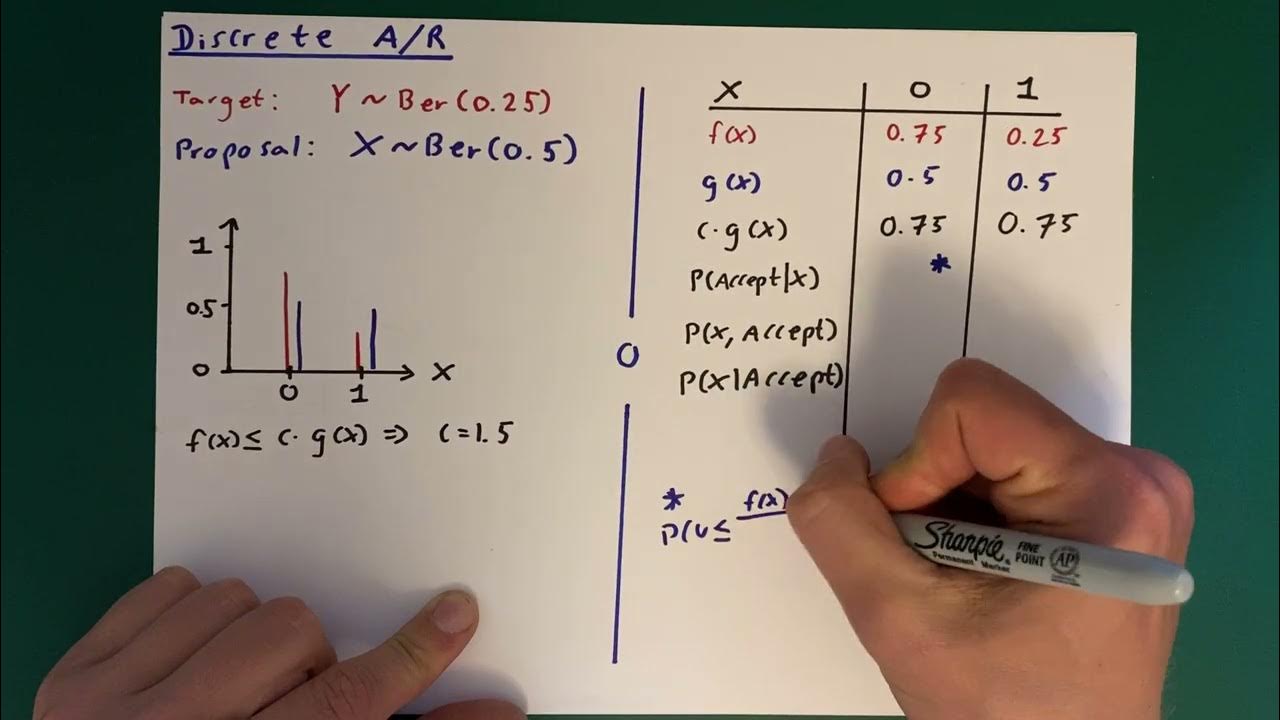 Discrete A/R
Target: Y ~ Ber(0.25)
Proposal: X ~ Ber(0.5)
1
0.5
0
0 1
X
f(x) ≤ c·g(x) ⇒ c=1.5
0
X 0 1
f(x) 0.75 0.25
g(x) 0.5 0.5
c·g(x) 0.75 0.75
P(Accept|x) *
P(x, Accept)
P(x|Accept)
*
P(U ≤ f(x)
Sharpie®
FINE POINT
AP
Permanent Marker